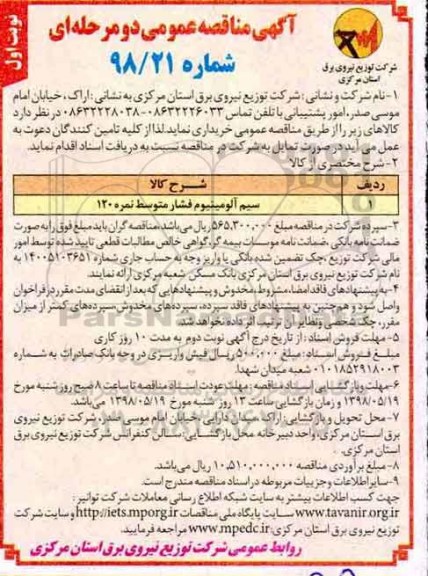 نوبت اول
آگهی مناقصه عمومی دو مرحله‌ای
شماره ۹۸/۲۱
شرکت توزیع نیروی برق
استان مرکزی
۱-نام شرکت و نشانی : شرکت توزیع نیروی برق استان مرکزی به نشانی : اراک، خیابان امام
موسی صدر، امور پشتیبانی با تلفن تماس ۰۸۶۳۲۲۲۶۰۳۳-۰۸۶۳۲۲۲۸۰۳۸ در نظر دارد
کالاهای زیر را از طریق مناقصه عمومی خریداری نماید. لذا از کلیه تامین کنندگان دعوت به
عمل می آید در صورت تمایل به شرکت در مناقصه نسبت به دریافت اسناد اقدام نماید.
۲-شرح مختصری از کالا
ردیف شرح کالا
۱ سیم آلومینیوم فشار متوسط نمره ۱۲۰
۳-سپرده شرکت در مناقصه مبلغ ۵۶۵,۳۰۰,۰۰۰ ریال می باشد. مناقصه گران باید مبلغ فوق را به صورت
ضمانت نامه بانکی، ضمانت نامه موسسات بیمه گر، گواهی خالص مطالبات قطعی تایید شده توسط امور
مالی شرکت توزیع، چک تضمین شده بانکی یا واریز وجه به حساب جاری شماره ۱۴۰۰۵۱۰۳۶۵۱ به
نام شرکت توزیع نیروی برق استان مرکزی بانک مسکن شعبه مرکزی ارائه نمایند.
۴-به پیشنهادهای فاقد امضاء، مشروط، مخدوش و پیشنهادهایی که بعد از انقضای مدت مقرر در فراخوان
واصل شود و همچنین به پیشنهادهای فاقد سپرده، سپرده‌های مخدوش، سپرده‌های کمتر از میزان
مقرر، چک شخصی و نظایر آن ترتیب اثر داده نخواهد شد.
۵-مهلت فروش اسناد : از تاریخ درج آگهی نوبت دوم به مدت ۱۰ روز کاری
مبلغ فروش اسناد : مبلغ ۵۰۰,۰۰۰ ریال فیش واریزی در وجه بانک صادرات به شماره
۰۱۰۱۸۵۲۹۱۸۰۰۳ شعبه میدان شهدا.
۶-مهلت و بازگشایی اسناد مناقصه : مهلت عودت اسناد مناقصه تا ساعت ۸ صبح روز شنبه مورخ
۱۳۹۸/۰۵/۱۹ و زمان بازگشایی ساعت ۱۳ روز شنبه مورخ ۱۳۹۸/۰۵/۱۹ می باشد.
۷-محل تحویل و بازگشایی : اراک، میدان دارایی، خیابان امام موسی صدر، شرکت توزیع نیروی
برق استان مرکزی، واحد دبیرخانه محل بازگشایی: سالن کنفرانس شرکت توزیع نیروی برق
استان مرکزی.
۸-مبلغ برآوردی مناقصه ۱۰,۵۱۰,۰۰۰,۰۰۰ ریال می باشد.
۹-سایر اطلاعات و جزییات مربوطه در اسناد مناقصه مندرج است.
جهت کسب اطلاعات بیشتر به سایت شبکه اطلاع رسانی معاملات شرکت توانیر :
www.tavanir.org.ir سایت پایگاه ملی مناقصات http://iets.mporg.ir و سایت شرکت
توزیع نیروی برق استان مرکزی: www.mpedc.ir مراجعه فرمایید.
روابط عمومی شرکت توزیع نیروی برق استان مرکزی